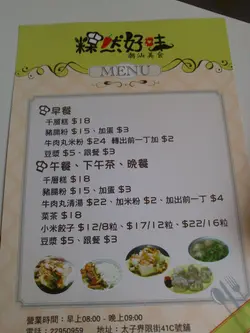 粿然好味
潮汕美食
MENU
早餐
千層糕 $18
豬腸粉 $15、加蛋 $3
牛肉丸米粉 $24 轉出前一丁加 $2
豆漿 $5、跟餐 $3
午餐、下午茶、晚餐
千層糕 $18
豬腸粉 $15、加蛋 $3
牛肉丸清湯 $22、加米粉 $2、加出前一丁 $4
菜茶 $18
小米餃子 $12/8粒、$17/12粒、$22/16粒
豆漿 $5、跟餐 $3
營業時間：早上08:00 - 晚上09:00
電話：22950959 地址：太子界限街41C號舖